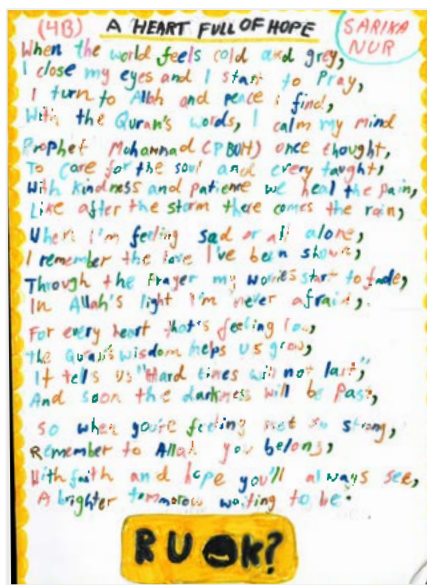 (4B) A HEART FULL OF HOPE
SARIKA
NUR
When the world feels cold and grey,
I close my eyes and I start to Pray,
I turn to Allah and peace i find,
With the Quran's words, I calm my mind
Prophet Mohammad (PBUH) once thought,
To Care for the soul and every taught,
With kindness and patience we heal the pain,
Like after the storm there comes the rain,
When I'm feeling sad or all alone,
I remember the love I've been shown,
Through the Prayer my worries start to fade,
In Allah's light I'm never afraid,
For every heart that's feeling low,
The Quran's wisdom helps us grow,
It tells us "Hard times will not last",
And soon the darkness will be Past,
So when you're feeling not so strong,
Remember to Allah you belong,
With faith and hope you'll always see,
A brighter tommorow waiting to be.
R U Ok?